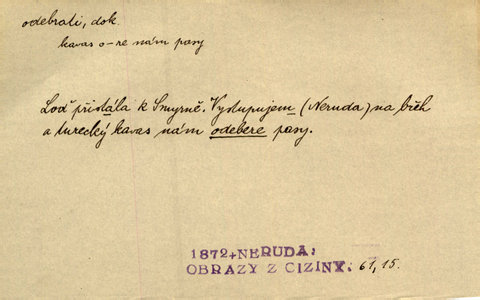 odebrati, dok.
kavas o-re nám pasy
Loď přistála k Smyrně. Vystupujem (Neruda) na břeh
a turecký kavas nám odebere pasy.
1872+NERUDA:
OBRAZY Z CIZINY: 61, 15.